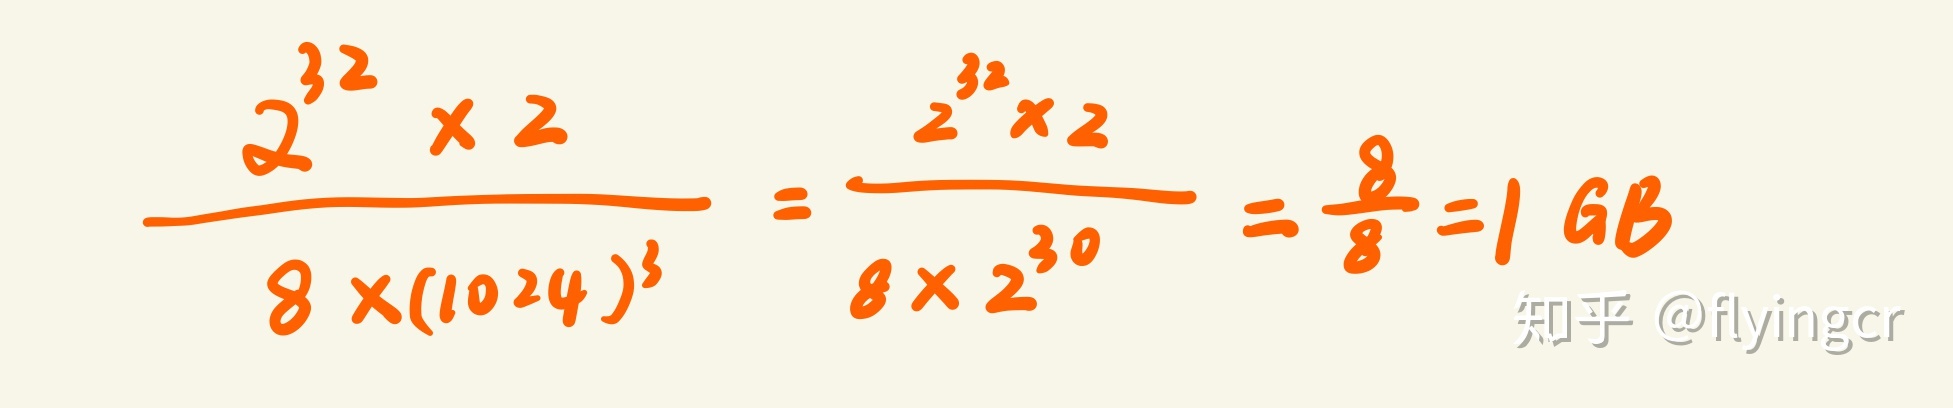 2^32 × 2 / 8 × (1024)^3 = 2^32 × 2 / 8 × 2^30 = 8/8 = 1 GB
知乎 @flyingcr